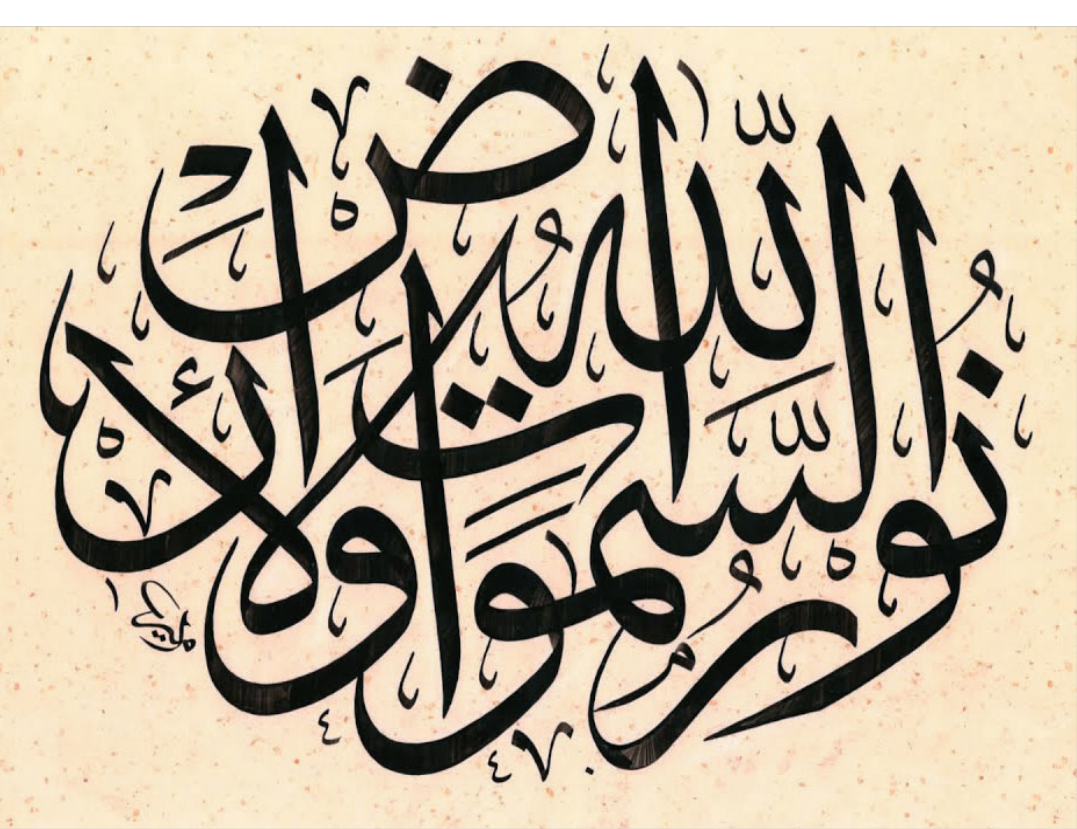 اللّٰهُ نُورُ السَّمٰوَاتِ وَالْأَرْضِ